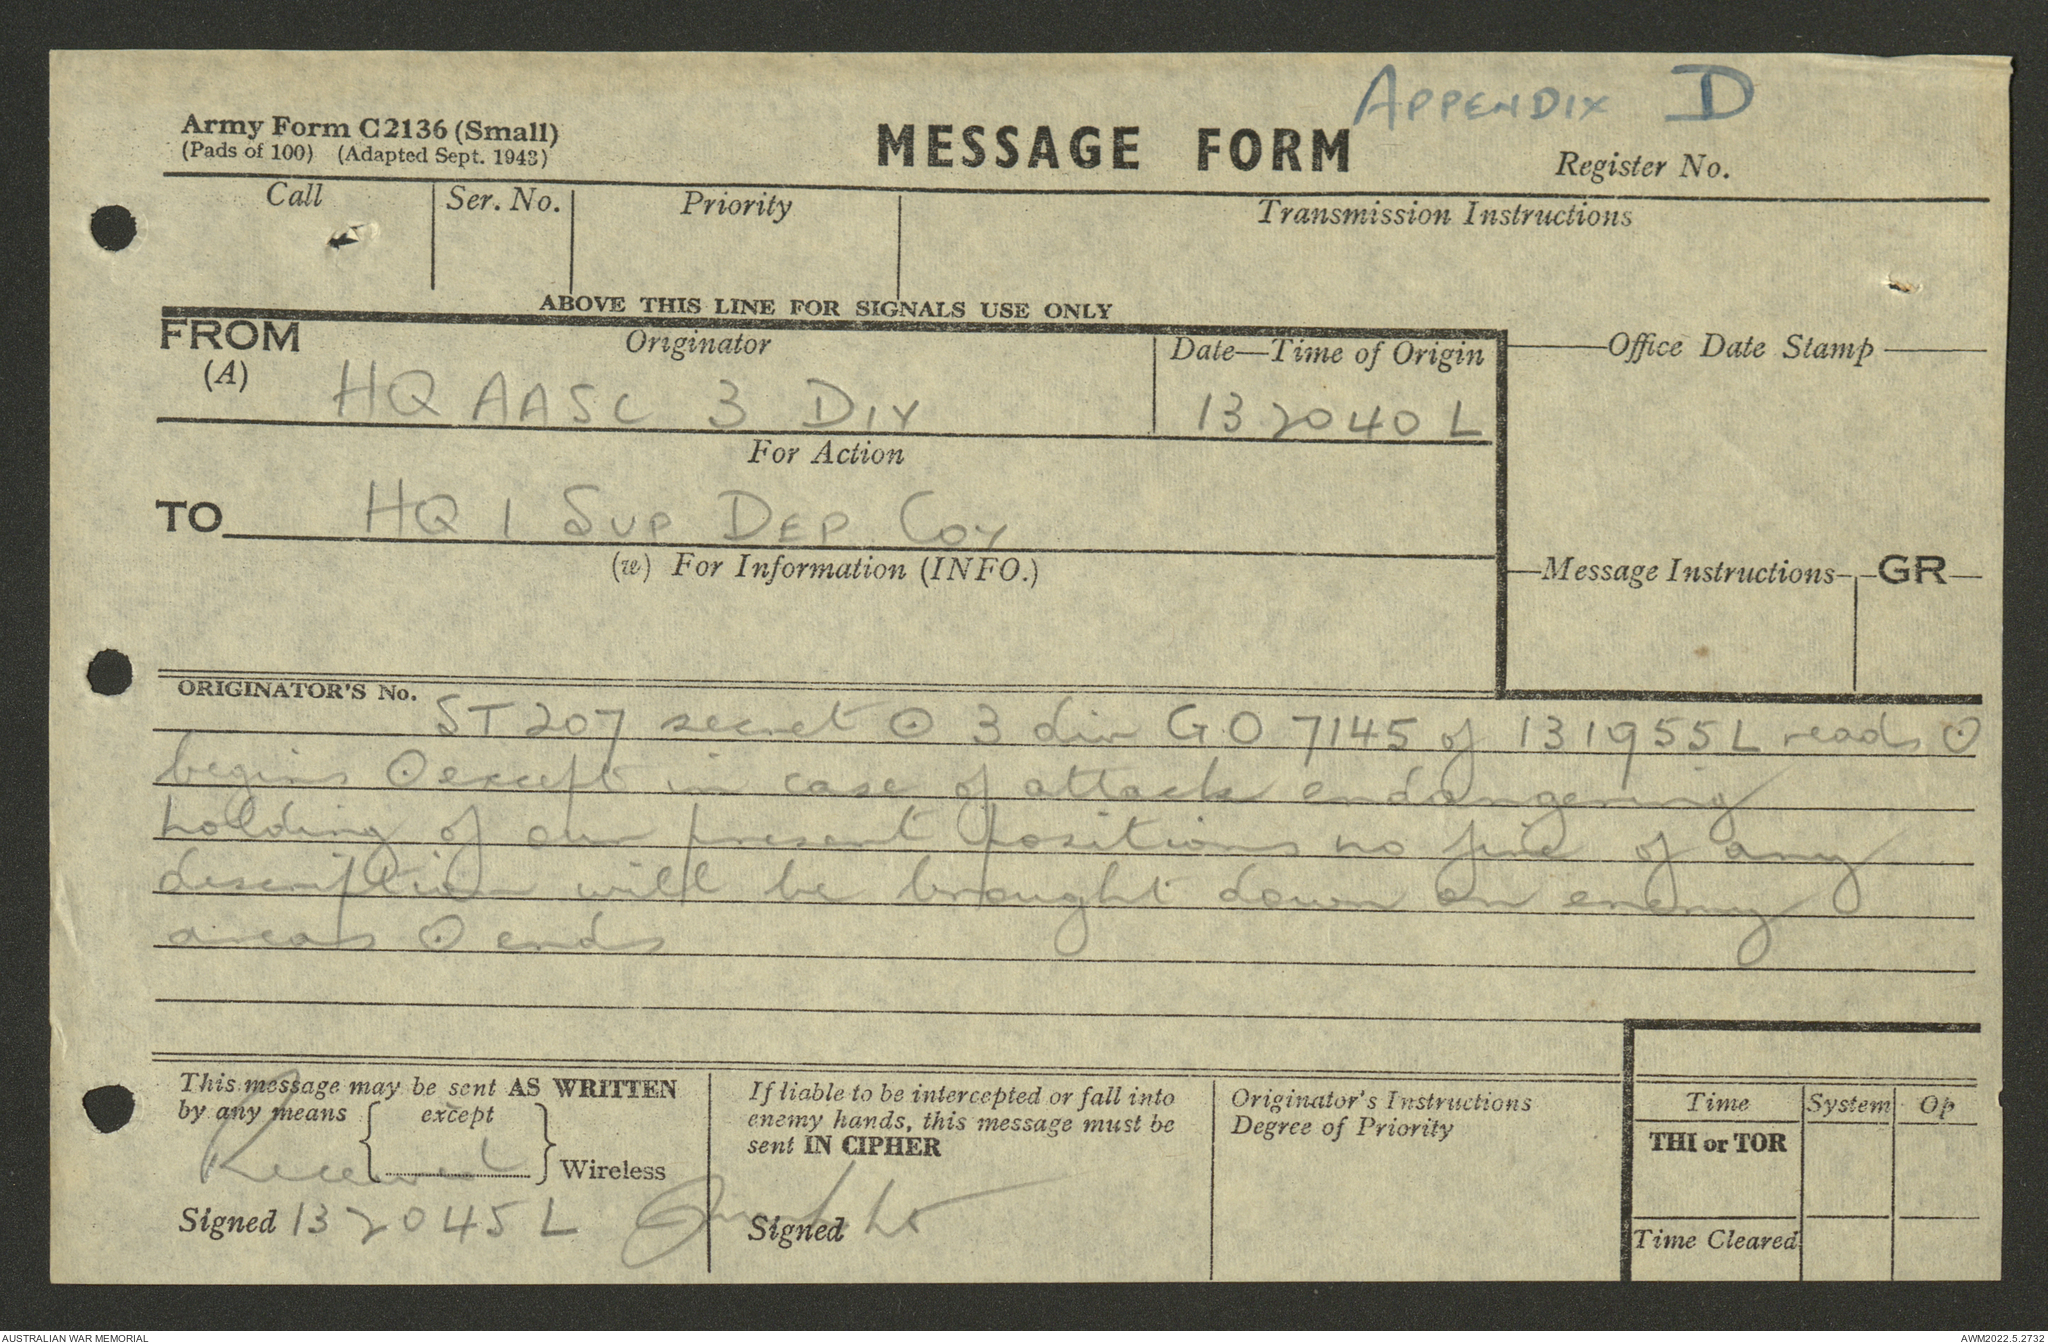 APPENDIX D
Army Form C2136 (Small)
(Pads of 100) (Adapted Sept. 1943)
MESSAGE FORM
Register No.
Call
Ser. No.
Priority
Transmission Instructions
ABOVE THIS LINE FOR SIGNALS USE ONLY
FROM
(A)
Originator
HQ AASC 3 DIV
Date—Time of Origin
132040L
Office Date Stamp
For Action
TO
HQ 1 SUP DEP COY
(w) For Information (INFO.)
Message Instructions
GR
ORIGINATOR'S No.
ST207 secret ⊙ 3 div GO 7145 of 131955L reads ⊙
begins ⊙ except in case of attack endangering
holding of our present positions no fire of any
description will be brought down on enemy
areas ⊙ ends
This message may be sent AS WRITTEN
by any means { except } Wireless
Received
Signed 132045L
If liable to be intercepted or fall into
enemy hands, this message must be
sent IN CIPHER
Signed
Originator's Instructions
Degree of Priority
Time System Op
THI or TOR
Time Cleared
AUSTRALIAN WAR MEMORIAL
AWM2022.5.2732